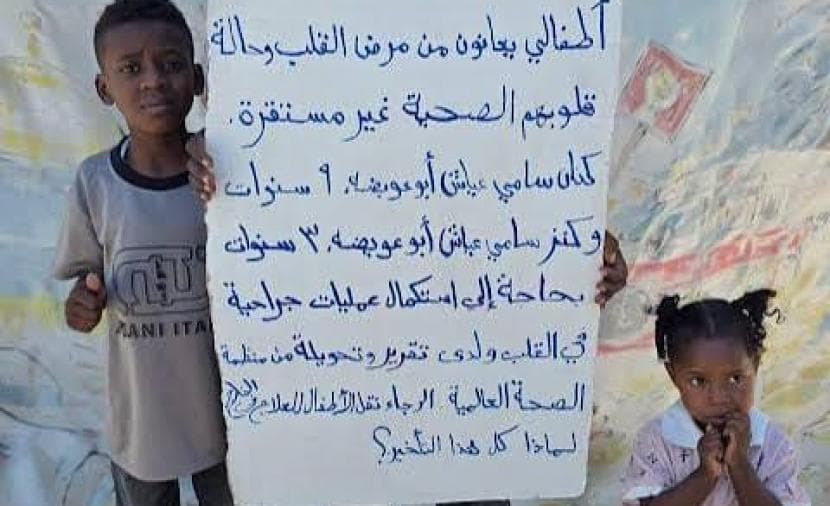 أطفالي يعانون من مرض القلب وحالة
قلوبهم الصحية غير مستقرة.
كنان سامي عياش أبو عويضه، ٩ سنوات
وكنز سامي عياش أبو عويضه، ٣ سنوات
بحاجة إلى استكمال عمليات جراحية
في القلب ولدى تقرير وتحويلة من منظمة
الصحة العالمية الرجاء نقل الأطفال للعلاج
لماذا كل هذا التأخير؟
ANI ITA